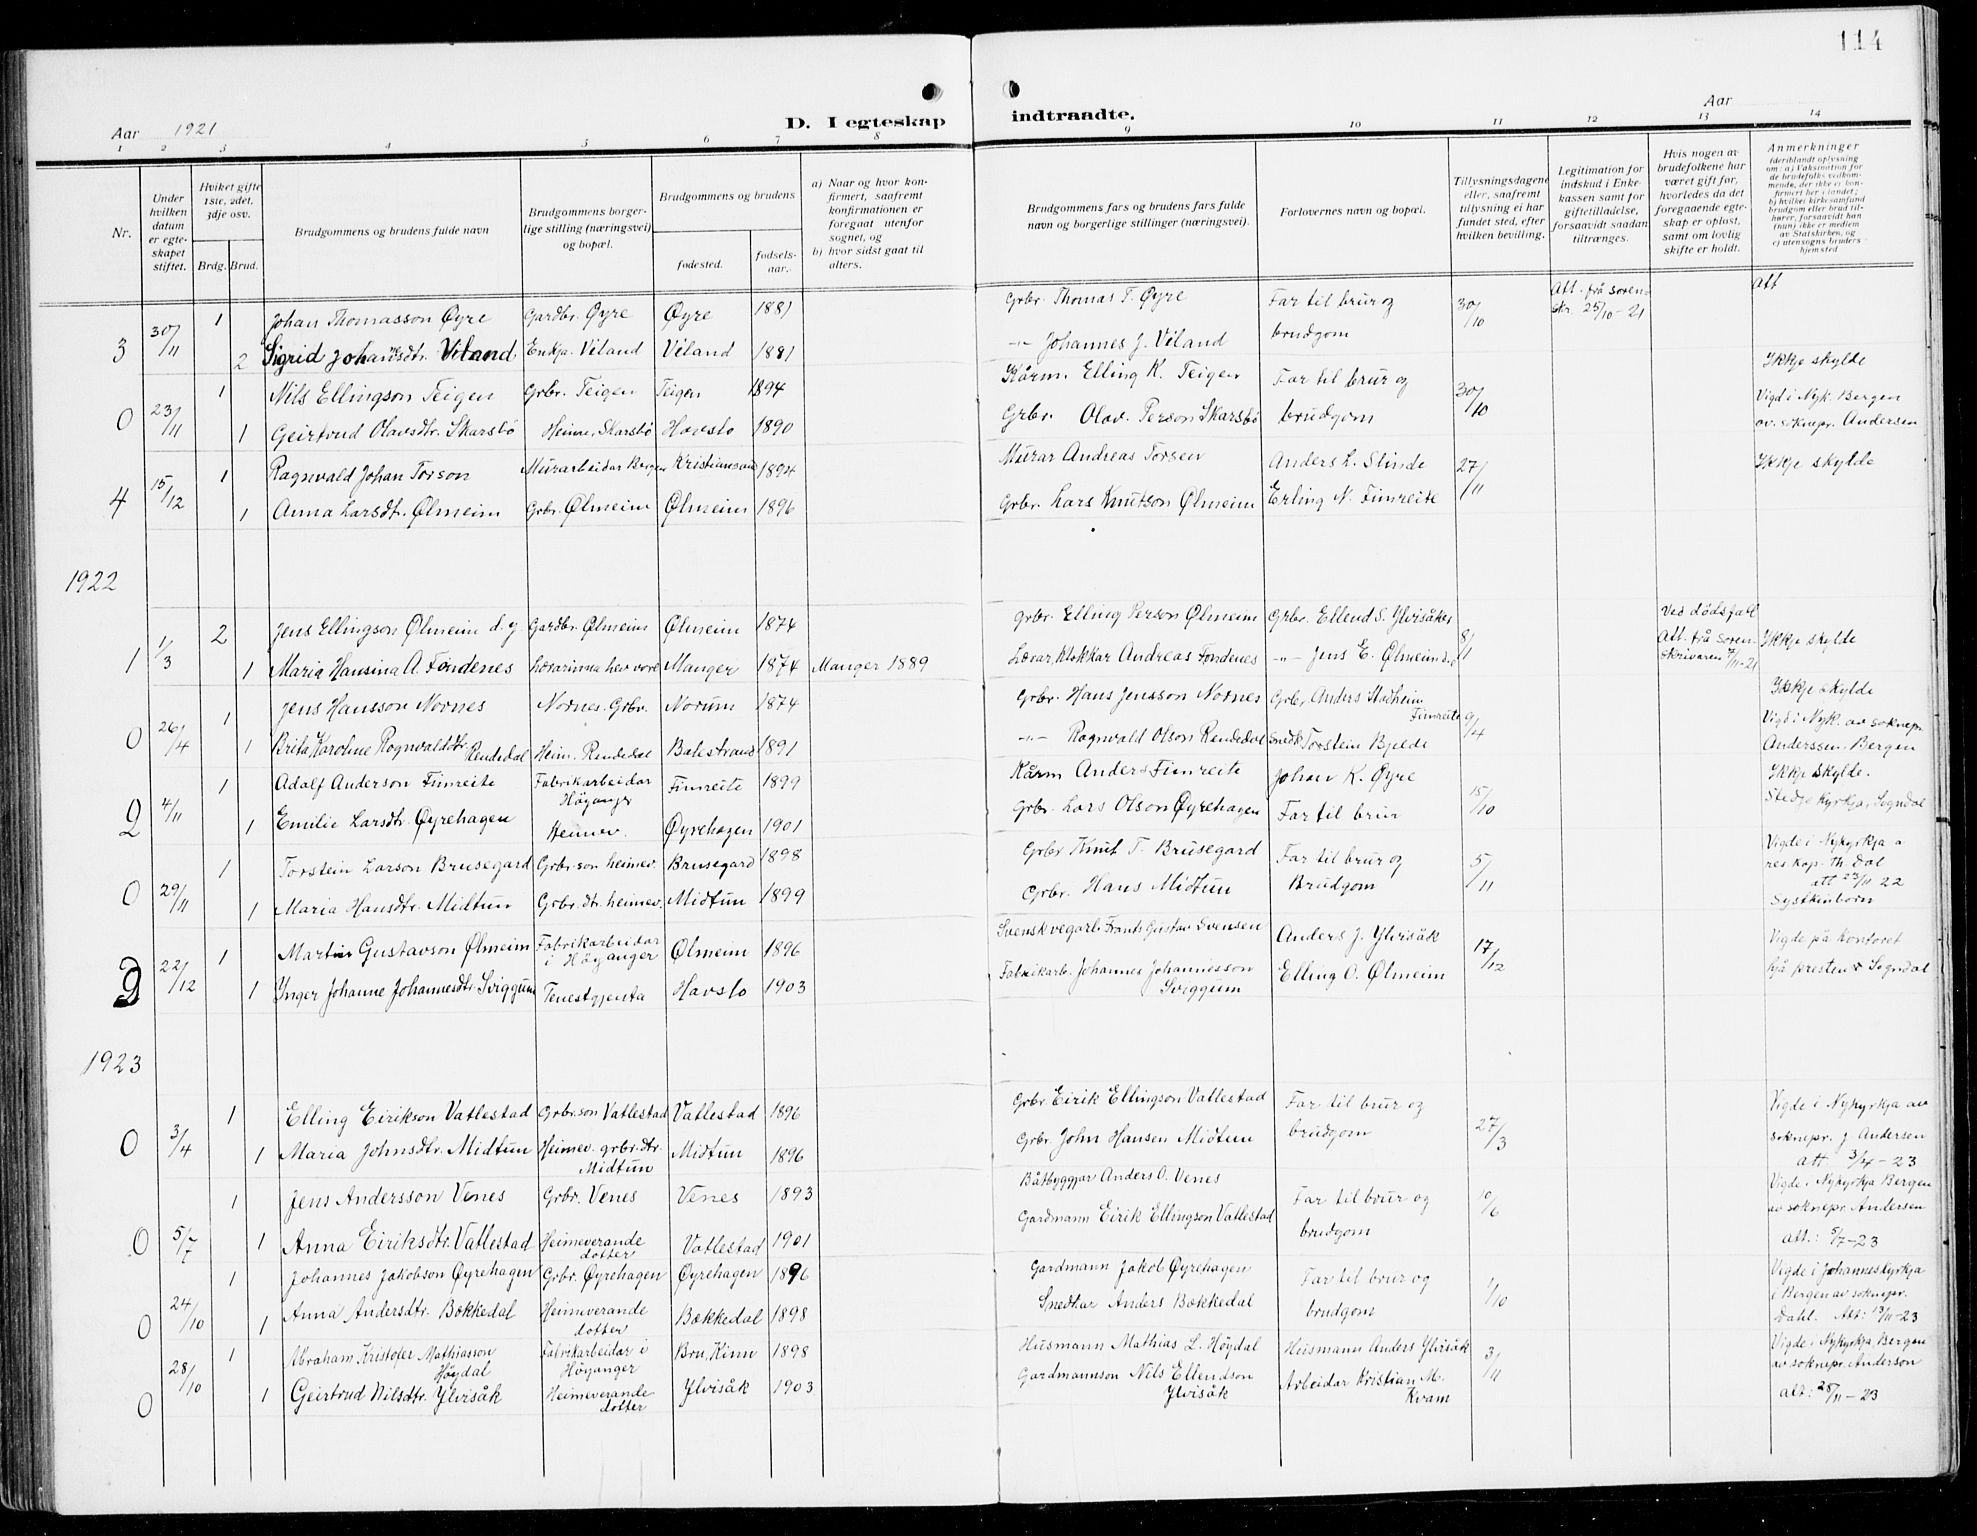 114
Aar 1921
D. I egteskap indtraadte.
Aar
1 2 3 4 5 6 7 8 9 10 11 12 13 14
Nr.
Under hvilken datum er egteskapet stiftet.
Hvilket gifte 1ste, 2det, 3dje osv.
Brdg. Brud.
Brudgommens og brudens fulde navn
Brudgommens borgerlige stilling (næringsvei) og bopæl.
Brudgommens og brudens
fødested.
fødselsaar.
a) Naar og hvor konfirmert, saafremt konfirmationen er foregaat utenfor sognet, og
b) hvor sidst gaat til alters.
Brudgommens fars og brudens fars fulde navn og borgerlige stillinger (næringsvei).
Forlovernes navn og bopæl.
Tillysningsdagene eller, saafremt tillysning ei har fundet sted, efter hvilken bevilling.
Legitimation for indskud i Enkekassen samt for giftetilladelse, forsaavidt saadan tiltrænges.
Hvis nogen av brudefolkene har været gift før, hvorledes da det foregaaende egteskap er opløst, samt om lovlig skifte er holdt.
Anmerkninger
(deriblandt oplysning om: a) Vaksination for de brudefolks vedkommende, der ikke er konfirmert her i landet; b) hvilket kirkesamfund brudgom eller brud tilhører, forsaavidt han (hun) ikke er medlem av Statskirken, og c) utensogns bruders hjemsted
3 30/11 1 Johan Thomasson Øyre Gardbr. Øyre Øyre 1881 Grbr. Thomas T. Øyre Far til brur og brudgom 30/10 Att. frå sorenskr. 25/10-21 Att
2 Sigrid Johannesdtr. Véland Enkja. Véland Véland 1881 -"- Johannes J. Véland Ikkje skylde
0 23/11 1 Nils Ellingson Teigen Grbr. Teigen Teigen 1894 Kårm. Elling K. Teigen Far til brur og brudgom 30/10 Vigd i Nyk. Bergen
1 Geirtrud Olavsdtr. Skarsbø Heime, Skarsbø Havslo 1890 Grbr. Olav Person Skarsbø av sóknepr. Andersen
4 15/12 1 Ragnvald Johan Torson Murarbeidar Bergen Kristiansund 1894 Murar Andreas Torsen Anders L. Slinde 27/11 Ikkje skylde
1 Anna Larsdtr. Ølmeim Grbr. Ølmeim Ølmeim 1896 Grbr. Lars Knutson Ølmeim Erling N. Fimreite
1922
1 1/3 2 Jens Ellingson Ølmeim d.y. Gardbr. Ølmeim Ølmeim 1874 Grbr. Elling Person Ølmeim Grbr. Ellend S. Ylvisåker 8/1 Ved dødsfall
1 Maria Hansina A. Fondenes Lærarinna hev vore Manger 1874 Manger 1889 Lærar, Klokkar Andreas Fondenes -"- Jens E. Ølmeim Att. frå sorenskrivaren 7/11-21 Ikkje skylde
0 26/4 1 Jens Hansson Nornes Nornes. Grbr. Norum 1874 Grbr. Hans Jensson Nornes Grbr. Anders Stadheim Fimreite 9/4 Ikkje skylde
1 Brita Karoline Ragnvaldsdtr. Rendedal Heim. Rendedal Balestrand 1891 -"- Ragnvald Olson Rendedal Snedk Torstein Bjelde Vigd i Nyk. av soknepr. Anderssen. Bergen
2 4/11 1 Adolf Anderson Fimreite Fabrikarbeidar Høyanger Fimreite 1899 Kårm Anders Fimreite Johan K. Øyre 15/10 Ikkje skylde.
1 Emilie Larsdtr. Øyrehagen Heimev. Øyrehagen 1901 Grbr. Lars Olson Øyrehagen Far til brur Stedje kyrkja, Sogndal
0 29/11 1 Torstein Larson Brusegard Grbr.son heimev. Brusegard 1898 Grbr Knut T. Brusegard Far til brur og Brudgom 5/11 Vigde i Nykyrkja a res.kap. th. Dal
1 Maria Hansdtr. Midtun Grbr.dtr. heimev. Midtun 1899 Grbr. Hans Midtun att 23/11 22 Systkinborn
3 22/12 1 Martin Gustavson Ølmeim Fabrikarbeidar i Høyanger Ølmeim 1896 Svensk vegarb. Frants Gustav Svensen Anders J. Ylvisåk 17/12 Vigde på kontoret
1 Inger Johanne Johannesdtr. Sviggum Tenestgjenta Havslo 1903 Fabrikarb. Johannes Johannesson Sviggum Elling O. Ølmeim hjå presten i Sogndal
1923
0 3/4 1 Elling Eirikson Vatlestad Grbr.son Vatlestad Vatlestad 1896 Grbr. Eirik Ellingson Vatlestad Far til brur og brudgom 27/3 Vigde i Nykyrkja av
1 Maria Johnsdtr. Midtun Heimev. grbr.dtr. Midtun Midtun 1896 Grbr. John Hansen Midtun soknepr. J. Andersen att 3/4-23
0 5/7 1 Jens Andersson Venes Grbr. Venes Venes 1893 Båtbyggjar Anders O. Venes Far til brur og brudgom 10/6 Vigde i Nykyrkja Bergen
1 Anna Eiriksdtr. Vatlestad Heimeverande dotter Vatlestad 1901 Gardmann Eirik Ellingson Vatlestad av soknepr. Andersen att.: 5/7-23
0 24/10 1 Johannes Jakobson Øyrehagen Grbr. Øyrehagen Øyrehagen 1896 Gardmann Jakob Øyrehagen Far til brur og brudgom 1/10 Vigde i Johanneskyrkja
1 Anna Andersdtr. Bækkedal Heimeverande dotter Bækkedal 1898 Snedkar Anders Bækkedal i Bergen av soknepr. Dahl. Att: 13/11-23
0 28/10 1 Abraham Kristofer Mathiasson Høydal Fabrikarbeidar i Høyanger Bru, Kinn 1898 Husmann Mathias L. Høydal Husmann Anders Ylvisåk 3/11 Vigde i Nykyrkja, Bergen
1 Geirtrud Nilsdtr. Ylvisåk Heimeverande dotter Ylvisåk 1903 Gardmannson Nils Ellendson Ylvisåk Arbeidar Kristian M. Kvam av soknepr. Anderson att: 28/11-23